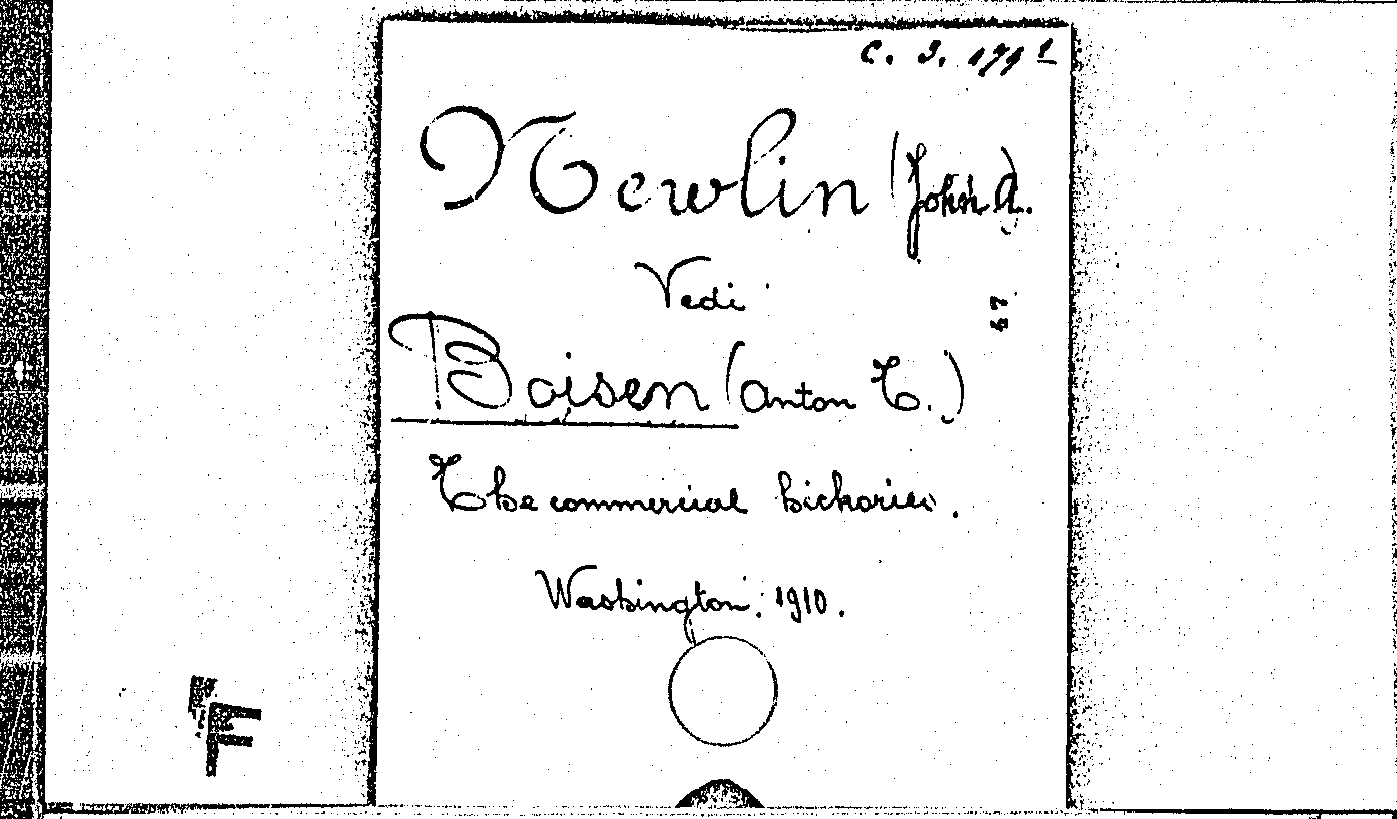 C. 3. 179 1
Newlin (John A.)
Vedi
67
Boisen (Anton T.)
The commercial hickories.
Washington. 1910.
F